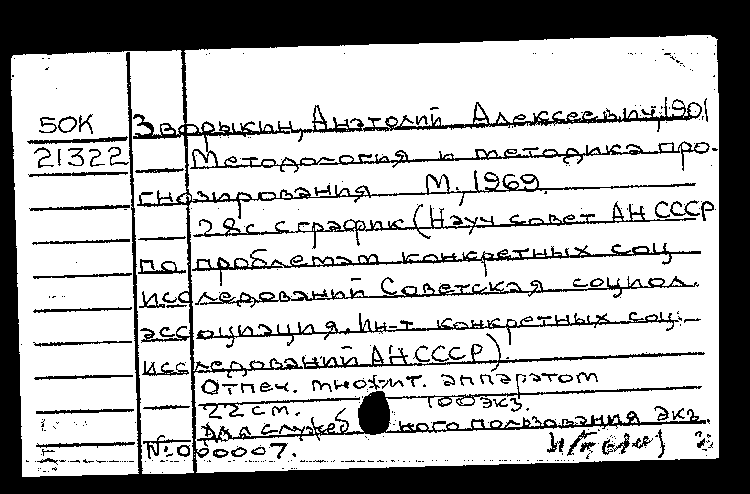 50К Зворыкин, Анатолий Алексеевич, 1901
21322 Методология и методика про-
гнозирования М., 1969.
28с с график (Науч совет АН СССР
по проблемам конкретных соц
исследований Советская социол.
ассоциация. Ин-т конкретных соц.
исследований АН СССР).
Отпеч. множит. аппаратом
22 см. 100 экз.
Для служеб ного пользования экз.
№ 000007.